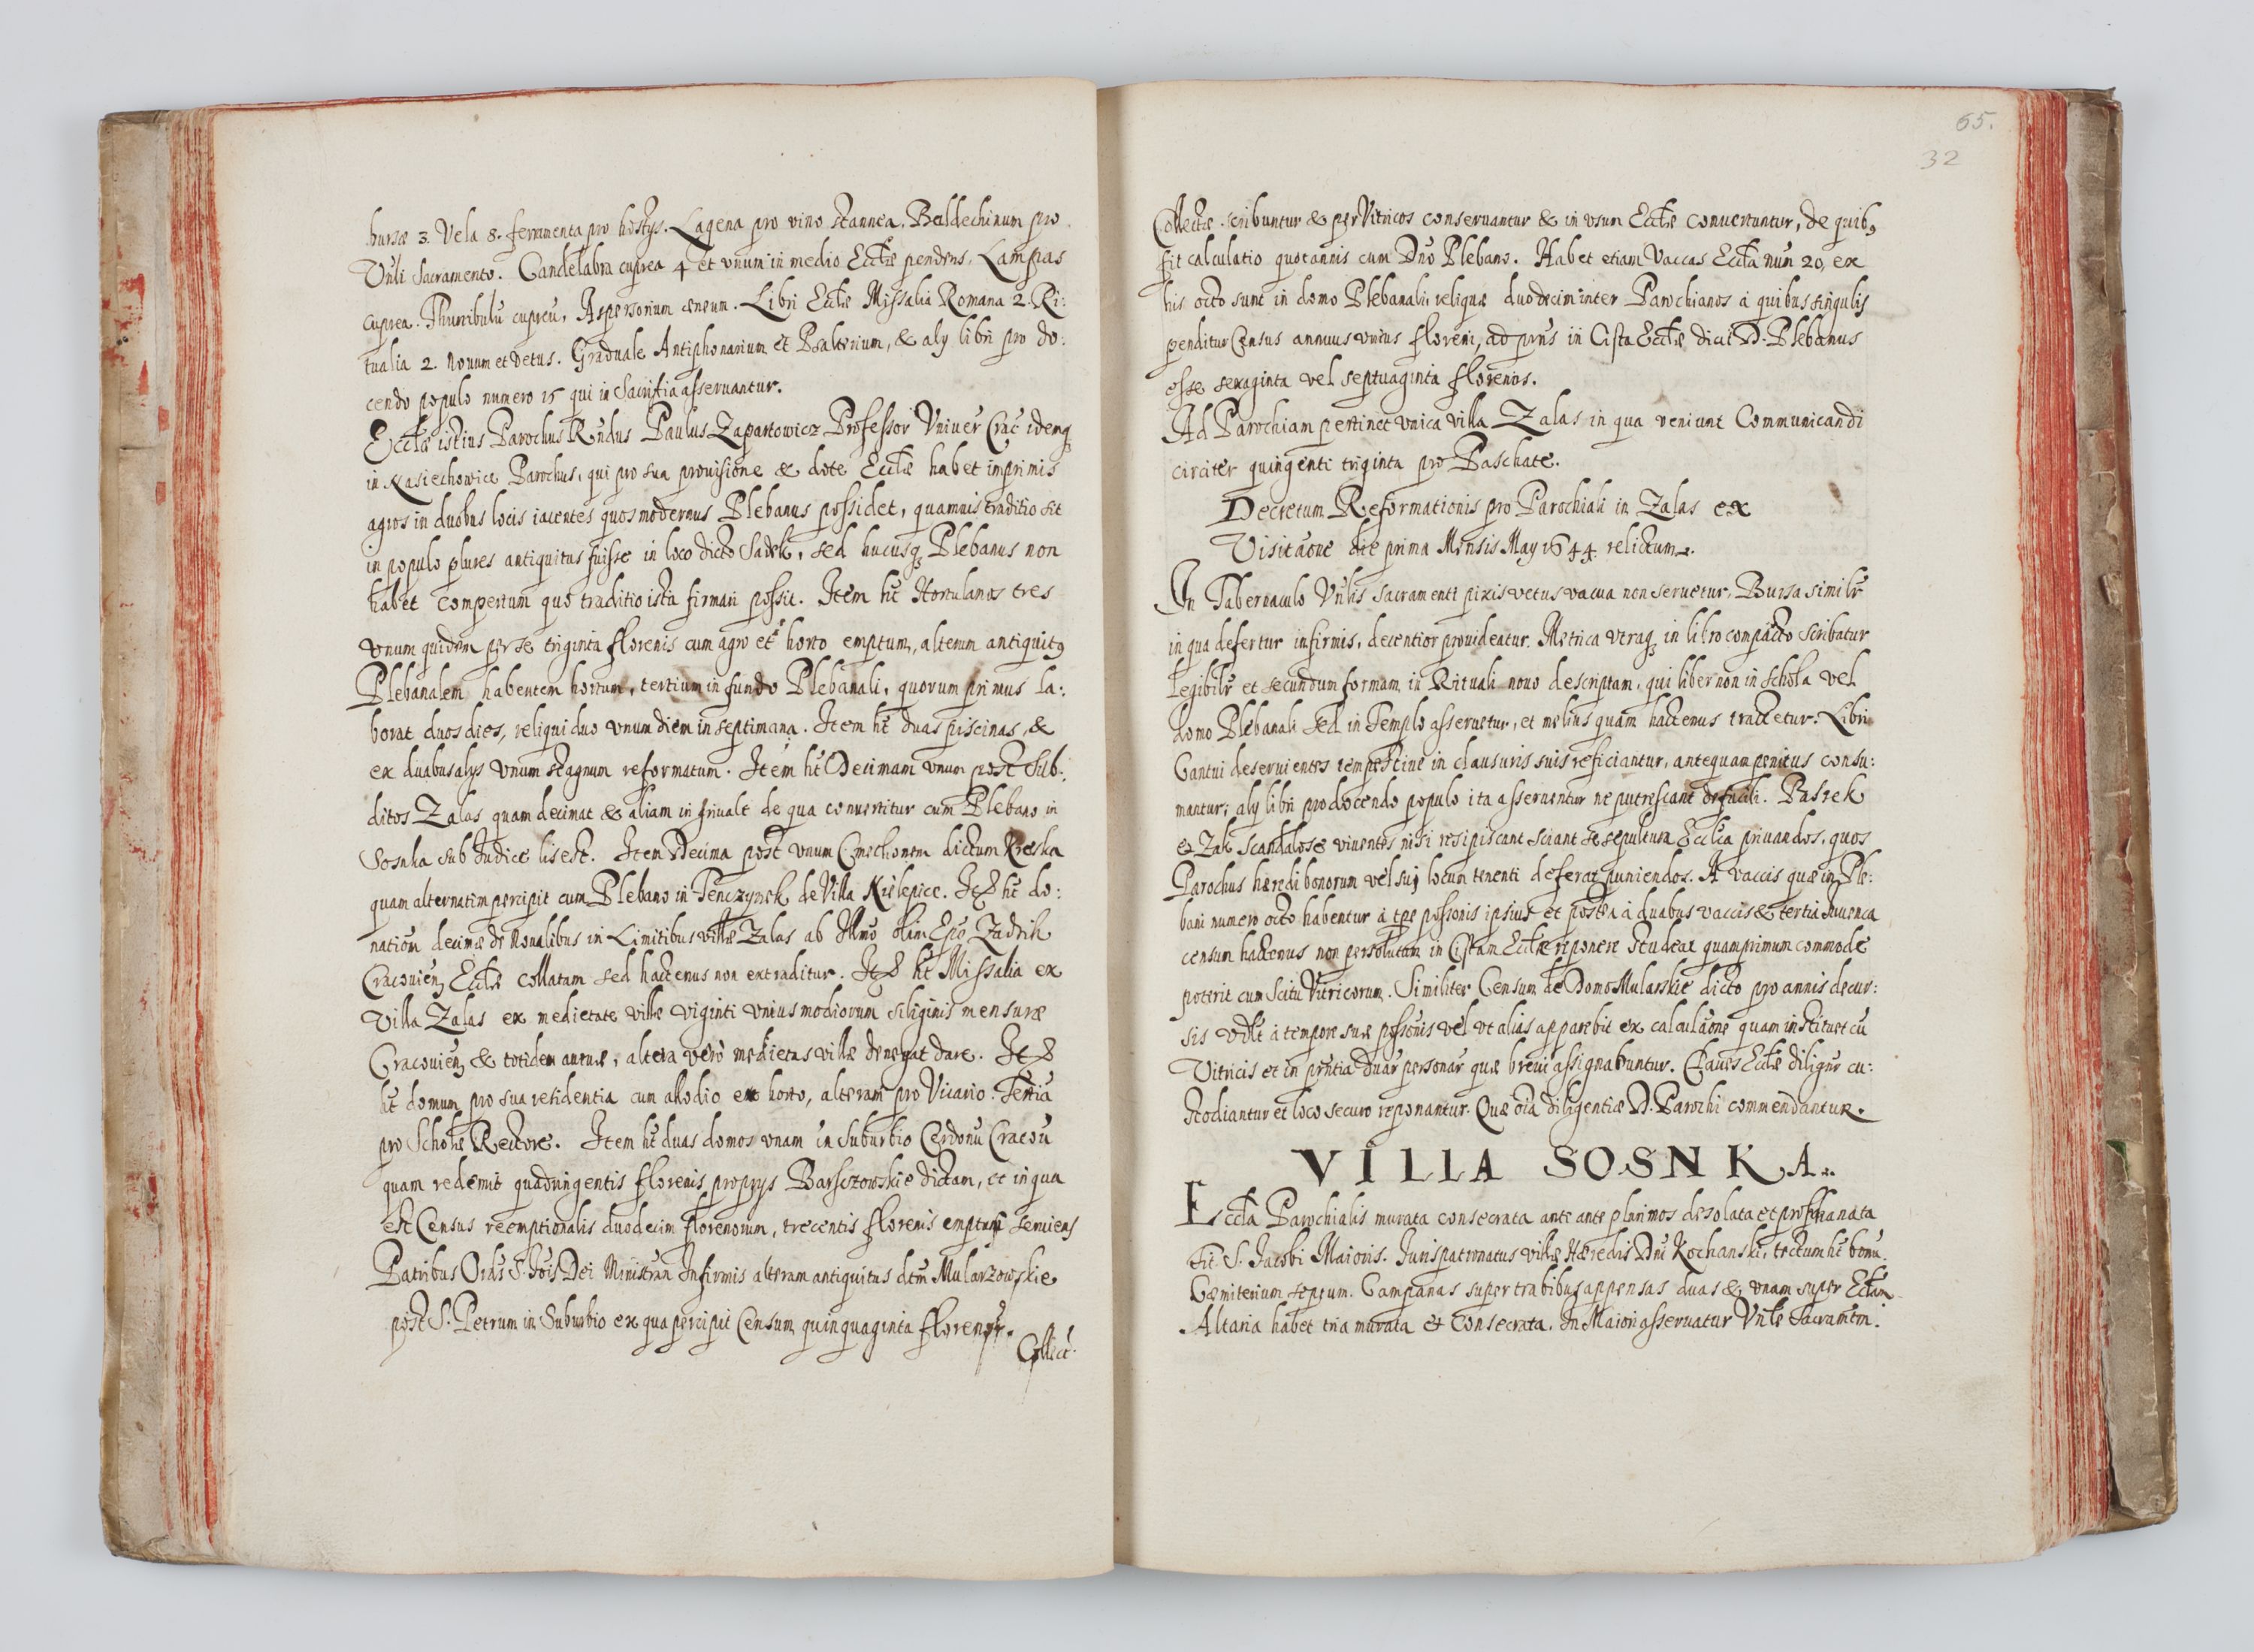 bursæ 3. Vela 8. ferramenta pro hostys. Lagena pro vino stannea. Baldechinum pro
Vnli Sacramento. Candelabra cuprea 4 et vnum in medio Ecclæ pendens, Lampas
cuprea. Thuribulũ cupreũ, Aspersorium æneum. Libri Ecclæ Missalia Romana 2. Ri:
tualia 2. Nouum et vetus. Graduale Antiphonarium et Psalterium, & aly libri pro do:
cendo populo numero 15 qui in Sacristia asseruantur.
Ecclæ istius Parochus Rndus Paulus Zapartowicz Professor Vniuer Crac ideng
in Kasiechowice Parochus, qui pro sua prouisione & dote Ecclæ habet imprimis
agros in duobus locis iacentes quos modernus Plebanus possidet, quamuis traditio sit
in populo plures antiquitus fuisse in loco dicto Sadek, sed hucusq Plebanus non
habet compertum quo traditio ista firmari possit. Item ht Hortulanos tres
vnum quidem per se triginta florenis cum agro et horto emptum, alterum antiquitg
Plebanalem habentem hortum, tertium in fundo Plebanali, quorum primus la:
borat duos dies, reliqui duo vnum diem in septimana. Item ht duas piscinas, &
ex duabus alys vnum stagnum reformatum. Item ht Decimam vnam post Sub:
ditos Zalas quam decimat & aliam in Friualt de qua conuertitur cum Plebano in
Sosnka sub Judice lis est. Item Decima post vnum Cmethonem dictum Kreska
quam alternatim percipit cum Plebano in Tenczynek de Villa Nielepice. Itẽ ht do:
nation decimæ de Noualibus in Limitibus villæ Zalas ab Illmo olim Epõ Zadzik
Cracouien Ecclæ collatam sed hactenus non extraditur. Itẽ ht Missalia ex
Villa Zalas ex medietate villæ viginti vnius modiorum siliginis mensuræ
Cracouien & totidem auenæ, altera verò medietas villæ denegat dare. Itẽ
ht domum pro sua residentia cum allodio et horto, alteram pro Vicario. Tertiã
pro Scholæ Rectore. Item ht duas domos vnam in Suburbio Cerdonũ Cracou
quam redemit quadringentis florenis proprys Barsczowskie dictam, et in qua
est Census reemptionalis duodecim florenorum, trecentis florenis emptus seruiens
Patribus Ordis S. Jois Dei Ministran Infirmis alteram antiquitus dctm Mularzowskie
post S. Petrum in Suburbio ex qua percipit Censum quinquaginta florenor.
Collect
65.
32
Collectæ scribuntur & per Vitricos conseruantur & in vsum Ecclæ conuertuntur, de quibg
fit calculatio quotannis cum Dno Plebano. Habet etiam Vaccas Eccla num 20, ex
his octo sunt in domo Plebanali, reliquæ duodecim inter Parochianos à quibus singulis
penditur Census annuus vnius floreni, ad prns in Cista Ecclæ dicit D. Plebanus
esse sexaginta vel septuaginta florenos.
Ad Parochiam pertinet vnica villa Zalas in qua veniunt Communicandi
circiter quingenti triginta pro Paschate.
Decretum Reformationis pro Parochiali in Zalas ex
Visitãone die prima Mensis May 1644 relictum.
In Tabernaculo Vnlis Sacramenti pixis vetus vacua non seruetur. Bursa similr
in qua defertur infirmis, decentior prouideatur. Metrica vtraq in libro compacto scribatur
legibilr et secundum formam in Rituali nouo descriptam, qui liber non in schola vel
domo Plebanali sed in Templo asseruetur, et melius quam hactenus tractetur. Libri
Cantui deseruientes tempestiue in clausuris suis reficiantur, antequam penitus consu:
mantur; aly libri pro docendo populo ita asseruentur ne putrescant de facili. Pastek
et Zak scandalose viuentes nisi resipiscant sciant se sepultura Ecclica priuandos, quos
Parochus hæredi bonorum vel sui locum tenenti deferat puniendos. A vaccis quæ in Ple:
bani numero octo habentur à tpe possonis ipsius et postea à duabus vaccis & tertia Iuuenca
censum hactenus non persolutum in Cistam Ecclæ reponere studeat quamprimum commode
poterit cum scitu Vitricorum. Similiter Censum de Domo Mularskie dicto pro annis decur:
sis vdlt à tempore suæ possonis vel vt alias apparebit ex calculãone quam instituet cũ
Vitricis et in prntia duar personar quæ breui assignabuntur. Claues Ecclæ diligenr cu:
stodiantur et loco securo reponantur. Quæ oĩa diligentiæ D. Parochi commendantur.
VILLA SOSNKA.
Eccla Parochialis murata consecrata ante ante plurimos desolata et prophanata
Tit S. Jacobi Maioris. Juris patronatus villæ Hæredis Dni Kochanski, tectum ht bonũ
Cæmiterium septum. Campanas super trabibus appensas duas & vnam super Ecclam
Altaria habet tria murata et consecrata. In Maiori asseruatur Vnle Sacramtm.